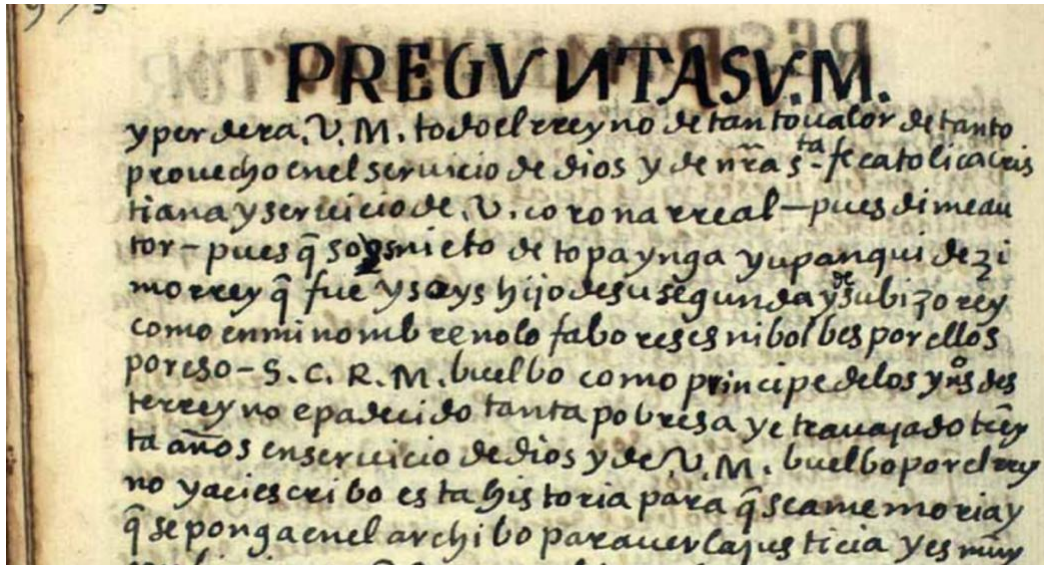 PREGVNTASV.M.
y perdera. V. M. todo el rreyno de tanto ualor de tanto
prouecho en el seruicio de dios y de nr̄a s.ta fe catolica cris
tiana y seruicio de. V. corona rreal – pues dime au
tor – pues q̄ soys nieto de topa ynga yupanqui dezi
mo rrey q̄ fue y soys hijo de su segunda y de su bizorrey
como en mi nombre no lo faboreses ni bolbes por ellos
por eso – S. C. R. M. buelbo como principe de los yn̊s des
te rreyno e padecido tanta pobresa y e trauajado treyn
ta años en seruicio de dios y de. V. M. buelbo por el rrey
no y aci escribo esta historia para q̄ sea memoria y
q̄ se ponga en el archibo para uer la justicia y es muy